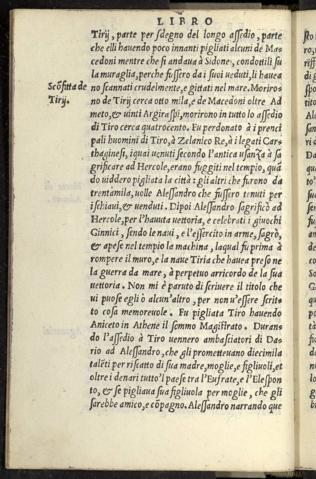 LIBRO
Tirij, parte per sdegno del longo assedio, parte
che elli hauendo poco innanti pigliati alcuni de Ma‑
cedoni mentre che si andaua à Sidone, condottili su
la muraglia, perche fussero da i suoi ueduti, li hauea
no scannati crudelmente, e gittati nel mare. Moriro‑
no de Tirij cerca otto mila, e de Macedoni oltre Ad
meto, & uinti Argiraspi, morirono in tutto lo assedio
di Tiro cerca quatrocento. Fu perdonato à i prenci
pali huomini di Tiro, à Zelanico Re, à i legati Car‑
thaginesi, iquai uenuti secondo l'antica usanza à sa
grificare ad Hercole, erano fuggiti nel tempio, quā
do uiddero pigliata la città: gli altri che furono da
trentamila, uolle Alessandro che fussero tenuti per
ischiaui, & uenduti. Dipoi Alessandro sagrificò ad
Hercole, per l'hauuta uettoria, e celebrati i giuochi
Ginnici, sendo le naui, e l'essercito in arme, sagrò,
& apese nel tempio la machina, laqual fu prima à
rompere il muro, e la naue Tiria che hauea preso ne
la guerra da mare, à perpetuo arricordo de la sua
uettoria. Non mi è paruto di scriuere il titolo che
ui puose egli ò alcun'altro, per non u'essere scrit‑
to cosa memoreuole. Fu pigliata Tiro hauendo
Aniceto in Athene il sommo Magistrato. Duran‑
do l'assedio à Tiro uennero ambasciatori di Da‑
rio ad Alessandro, che gli prometteuano diecimila
talēti per riscatto di sua madre, moglie, e figliuoli, et
oltre i denari tutto'l paese tra l'Eufrate, e l'Elespon
to, & se pigliaua sua figliuola per moglie, che gli
sarebbe amico, e cōpagno. Alessandro narrando que
Scōfitta de
Tirij.